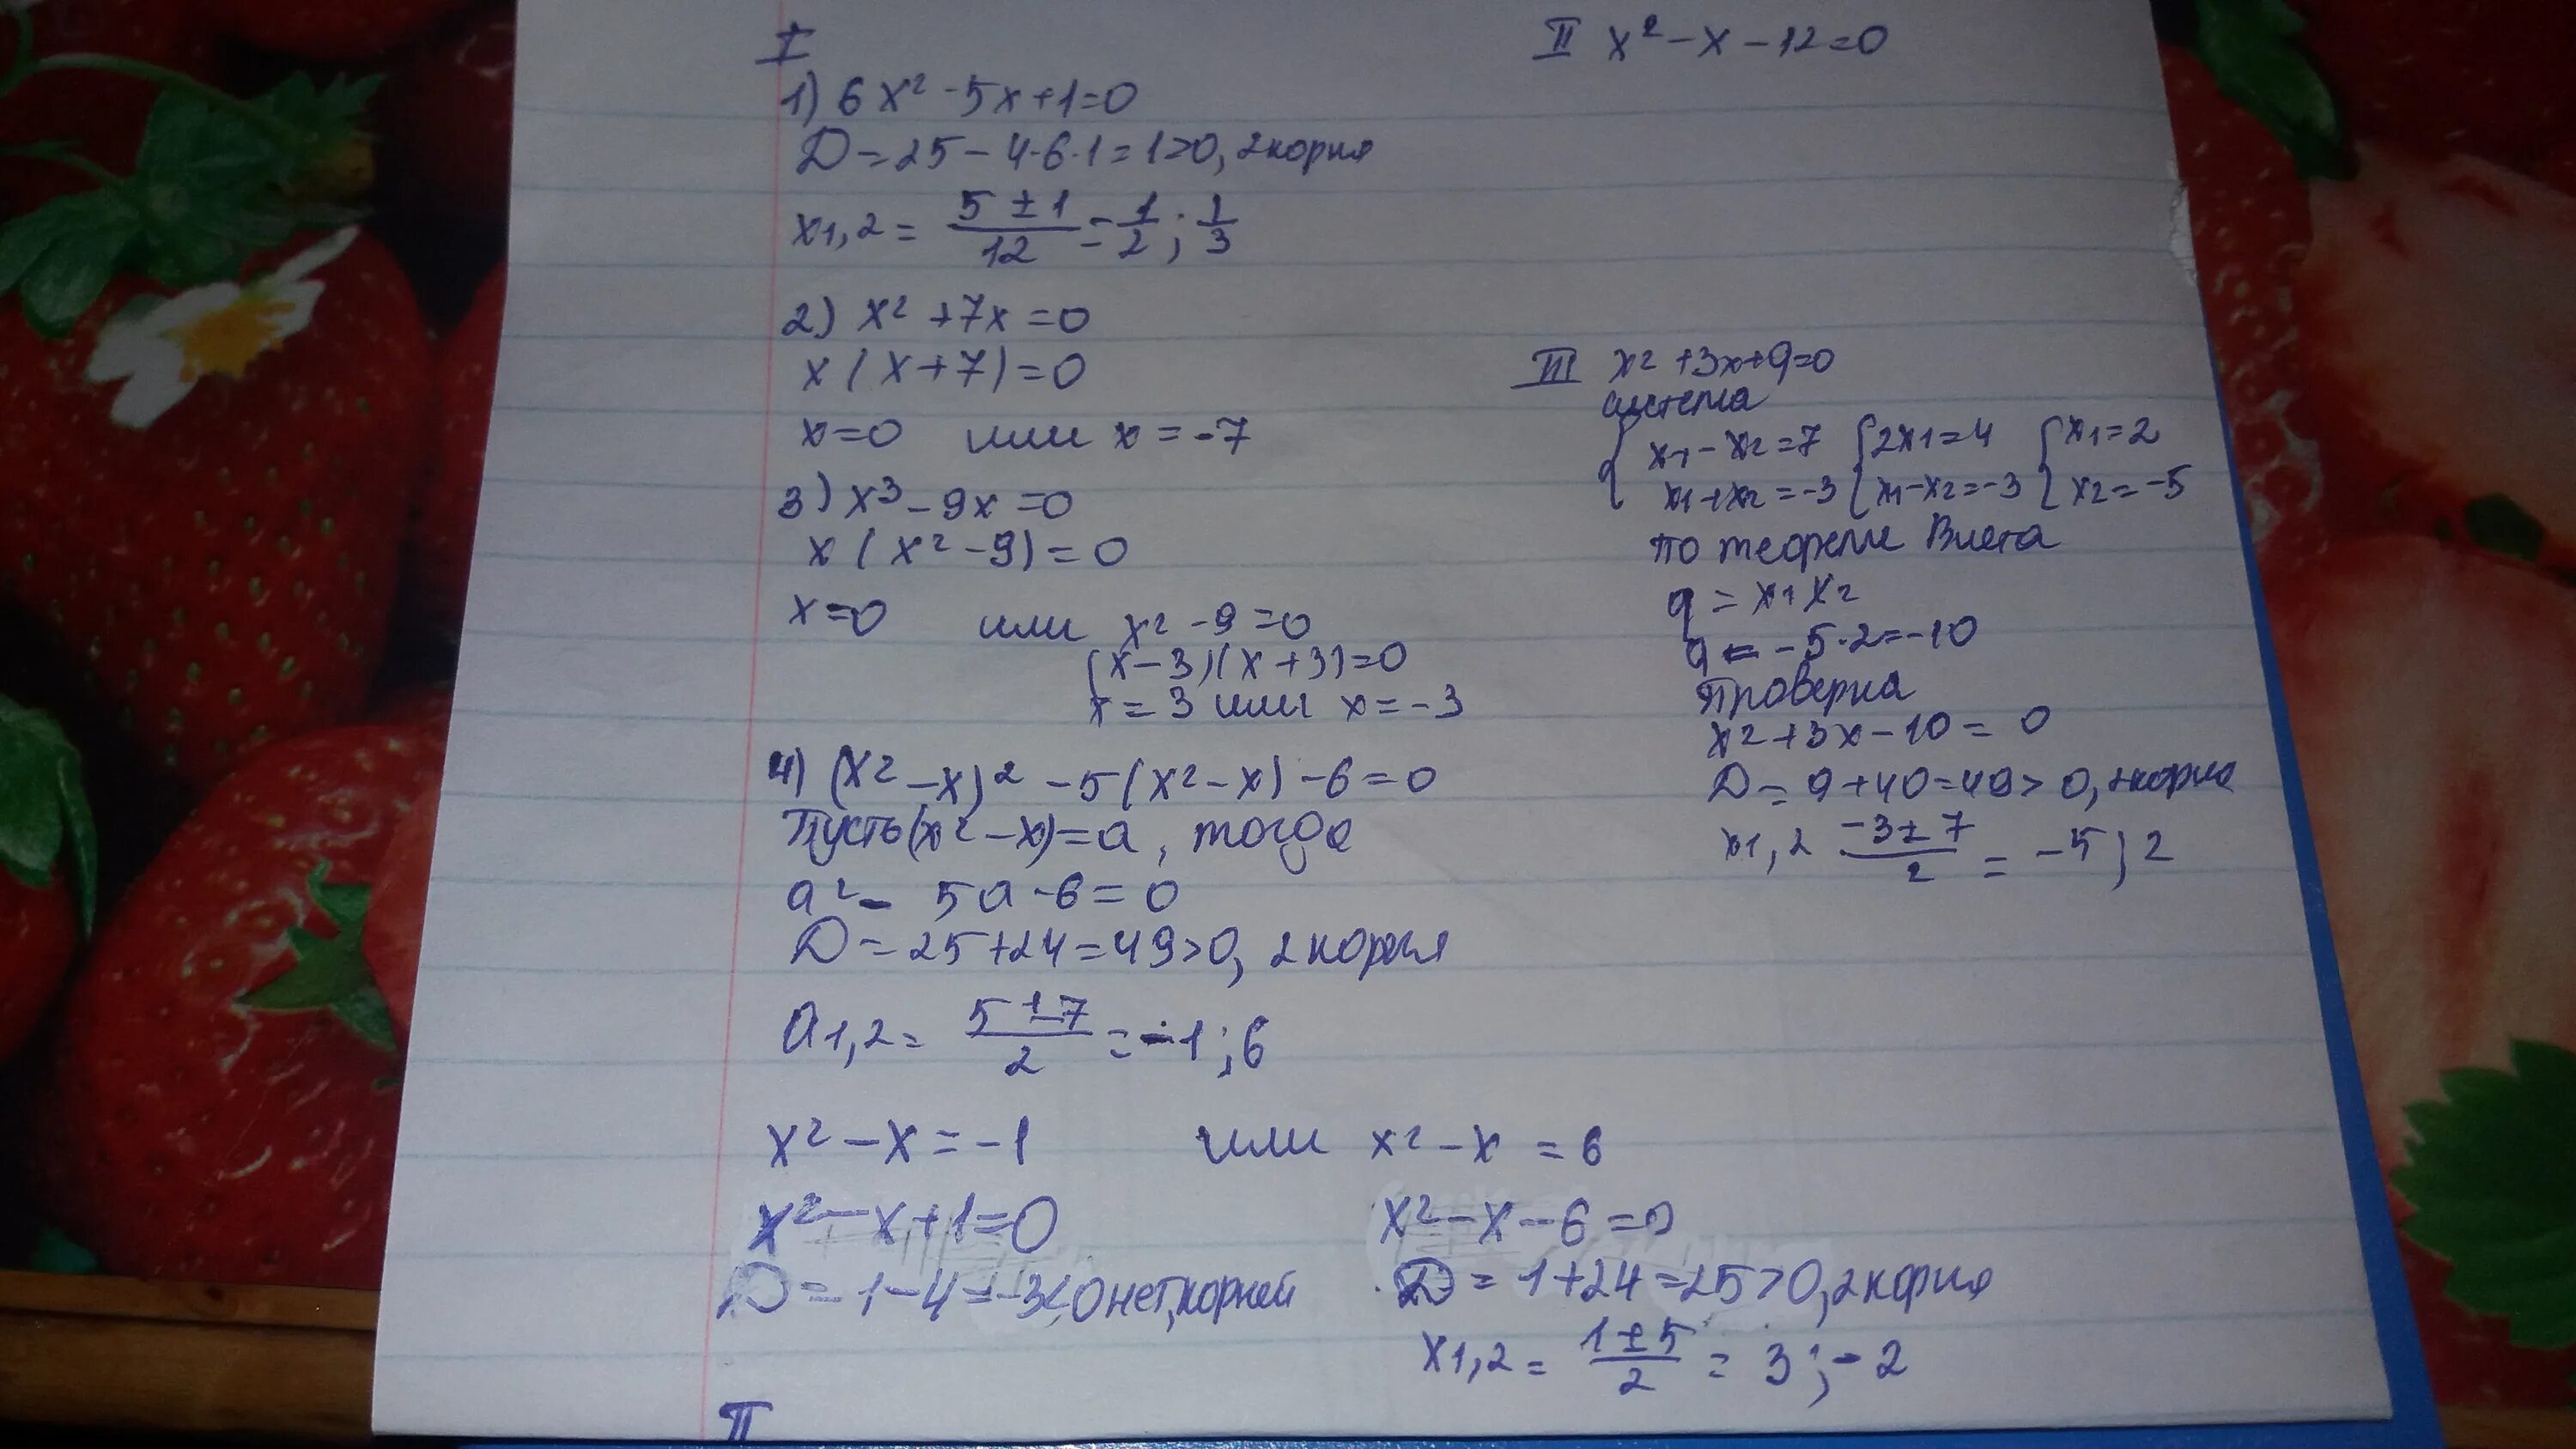 I
1) 6x² - 5x + 1 = 0
D = 25 - 4·6·1 = 1 > 0, 2 корня
x1,2 = (5 ± 1)/12 = 1/2 ; 1/3
2) x² + 7x = 0
x(x + 7) = 0
x = 0 или x = -7
3) x³ - 9x = 0
x(x² - 9) = 0
x = 0 или x² - 9 = 0
(x - 3)(x + 3) = 0
x = 3 или x = -3
4) (x² - x)² - 5(x² - x) - 6 = 0
Пусть (x² - x) = a, тогда
a² - 5a - 6 = 0
D = 25 + 24 = 49 > 0, 2 корня
a1,2 = (5 ± 7)/2 = -1 ; 6
x² - x = -1 или x² - x = 6
x² - x + 1 = 0
D = 1 - 4 = -3 < 0 нет, корней
x² - x - 6 = 0
D = 1 + 24 = 25 > 0, 2 корня
x1,2 = (1 ± 5)/2 = 3 ; -2
II
II x² - x - 12 = 0
III x² + 3x + q = 0
система
{ x1 - x2 = 7 { 2x1 = 4 { x1 = 2
x1 + x2 = -3 { x1 - x2 = -3 { x2 = -5
по теореме Виета
q = x1 x2
q = -5·2 = -10
Проверка
x² + 3x - 10 = 0
D = 9 + 40 = 49 > 0, корня
x1,2 (-3 ± 7)/2 = -5 ; 2